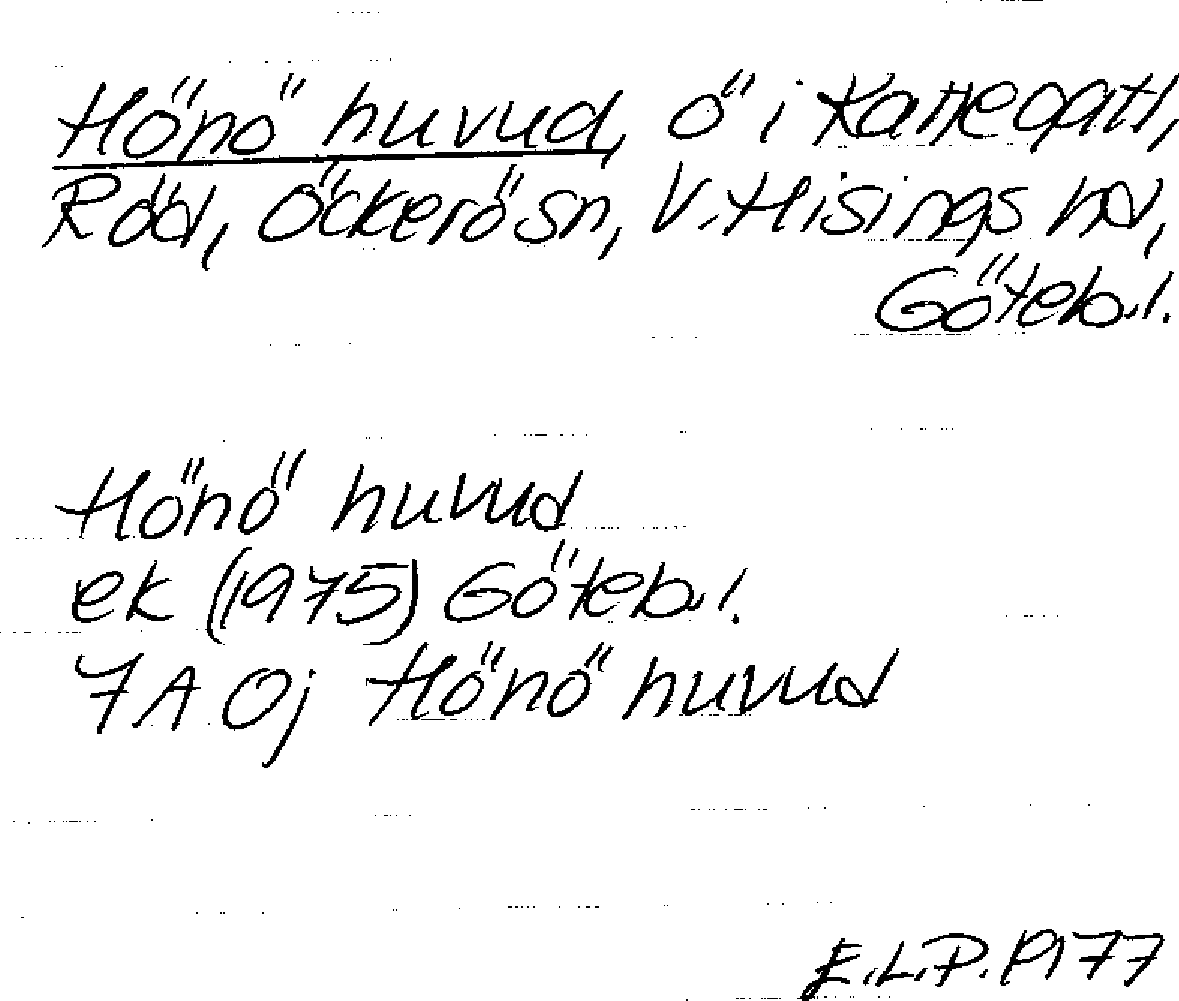 Hönö huvud, ö i Kattegatt,
Röd, Öckerö sn, V. Hisings hd,
Göteb. l.
Hönö huvud
ek (1975) Göteb. l.
7A Oj Hönö huvud
E.L.P. 1977